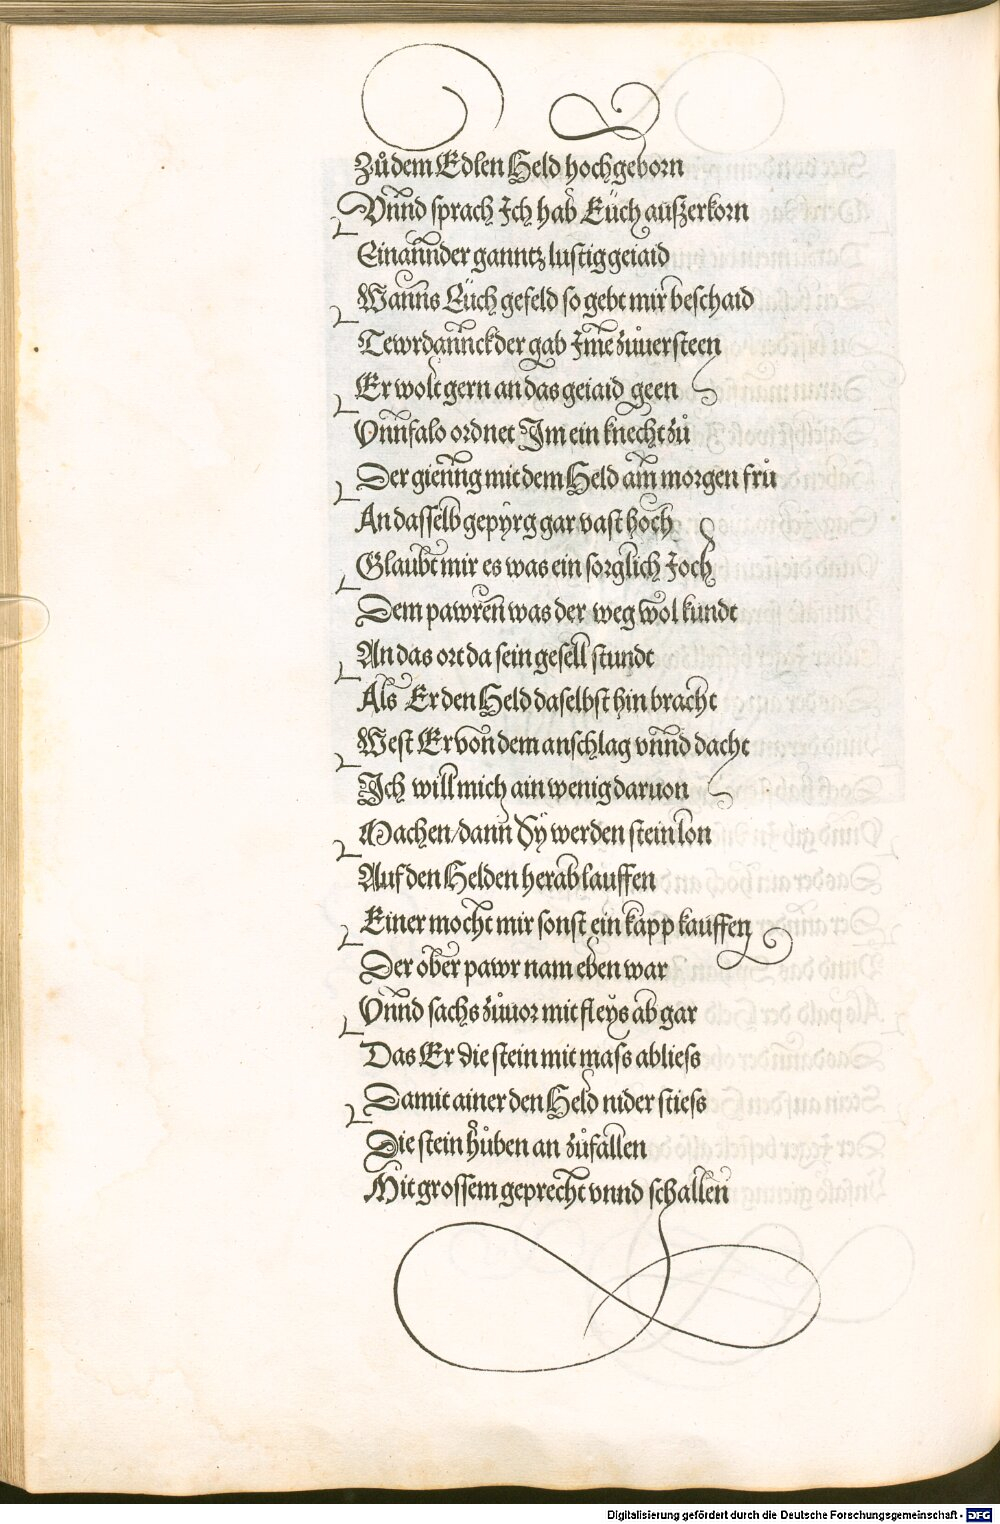 Zů dem Edlen Held hochgeborn
Vnnd sprach Ich hab Eüch auszerkorn
Ein annder ganntz lustig geiaid
Wanns Eüch gefeld so gebt mir beschaid
Tewrdannckder gab Ime zůuersteen
Er wolt gern an das geiaid geen
Vnnfalo ordnet Im ein knecht zů
Der gienng mit dem Held am morgen frů
An dasselb gepÿrg gar vast hoch
Glaubt mir es was ein sorglich Joch
Dem pawren was der weg wol kundt
An das ort da sein gesell stundt
Als Er den Held daselbst hin bracht
West Er von dem anschlag vnnd dacht
Ich will mich ain wenig daruon
Machen/dann Sÿ werden stein lon
Auf den Helden herab lauffen
Einer mocht mir sonst ein kapp kauffen
Der ober pawr nam eben war
Vnnd sachs zůuor mit fleÿs ab gar
Das Er die stein mit mass abliess
Damit ainer den Held nider stiess
Die stein hůben an zůfallen
Mit grossem geprecht vnnd schallen
Digitalisierung gefördert durch die Deutsche Forschungsgemeinschaft - DFG